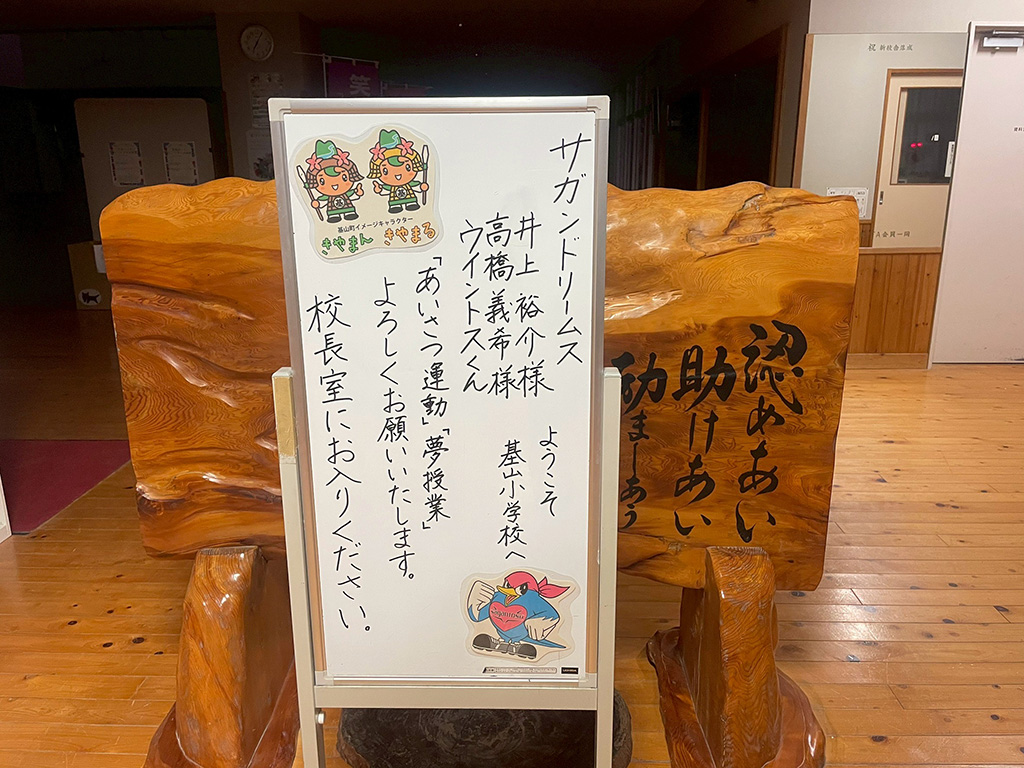 サガンドリームス
井上 裕介様
高橋 義希様
ウイントスくん
ようこそ
基山小学校へ
「あいさつ運動」「夢授業」
よろしくお願いいたします。
校長室にお入りください。
基山町イメージキャラクター
きやまん きやまる
認めあい
助けあい
励ましあう
祝 新校舎落成
笑